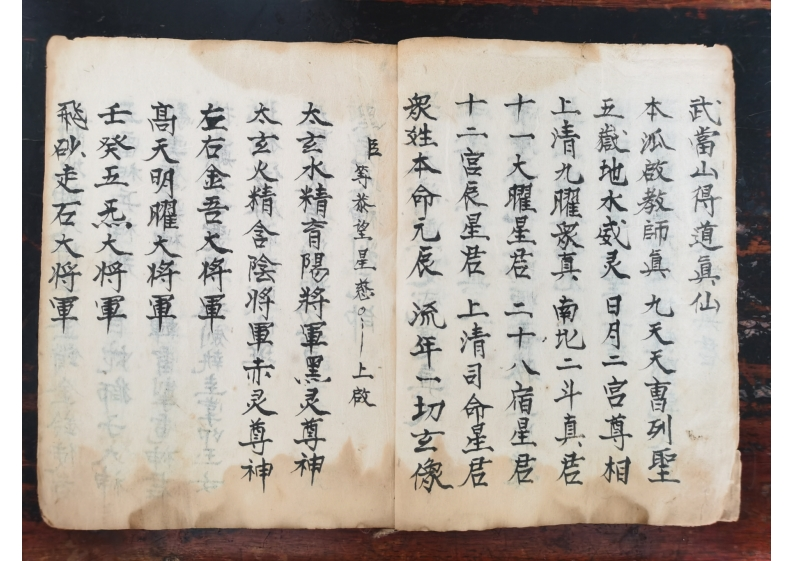 武當山得道眞仙
本派啟教師眞 九天天曹列聖
五嶽地水威灵 日月二宫尊相
上清九曜衆真 南北二斗真君
十一大曜星君 二十八宿星君
十二宫辰星君 上清司命星君
衆姓本命元辰 流年一切玄像
臣 等恭望星慈 上啟
太玄水精育陽將軍黑灵尊神
太玄火精含陰將軍赤灵尊神
左右金吾大將軍
髙天明曜大將軍
壬癸五炁大將軍
飛砂走石大將軍